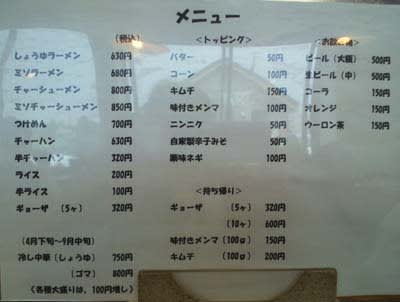 メニュー
(税込)
しょうゆラーメン 630円
ミソラーメン 680円
チャーシューメン 800円
ミソチャーシューメン 850円
つけめん 700円
チャーハン 630円
半チャーハン 320円
ライス 200円
半ライス 100円
ギョーザ (5ヶ) 320円
(4月下旬~9月中旬)
冷し中華(しょうゆ) 750円
(ゴマ) 800円
<各種大盛りは、100円増し>
<トッピング>
バター 50円
コーン 100円
キムチ 150円
味付きメンマ 100円
ニンニク 50円
自家製辛子みそ 50円
薬味ネギ 100円
<持ち帰り>
ギョーザ (5ヶ) 320円
(10ヶ) 600円
味付きメンマ(100g) 150円
キムチ (100g) 200円
ビール(大瓶) 500円
生ビール(中) 500円
コーラ 150円
オレンジ 150円
ウーロン茶 150円